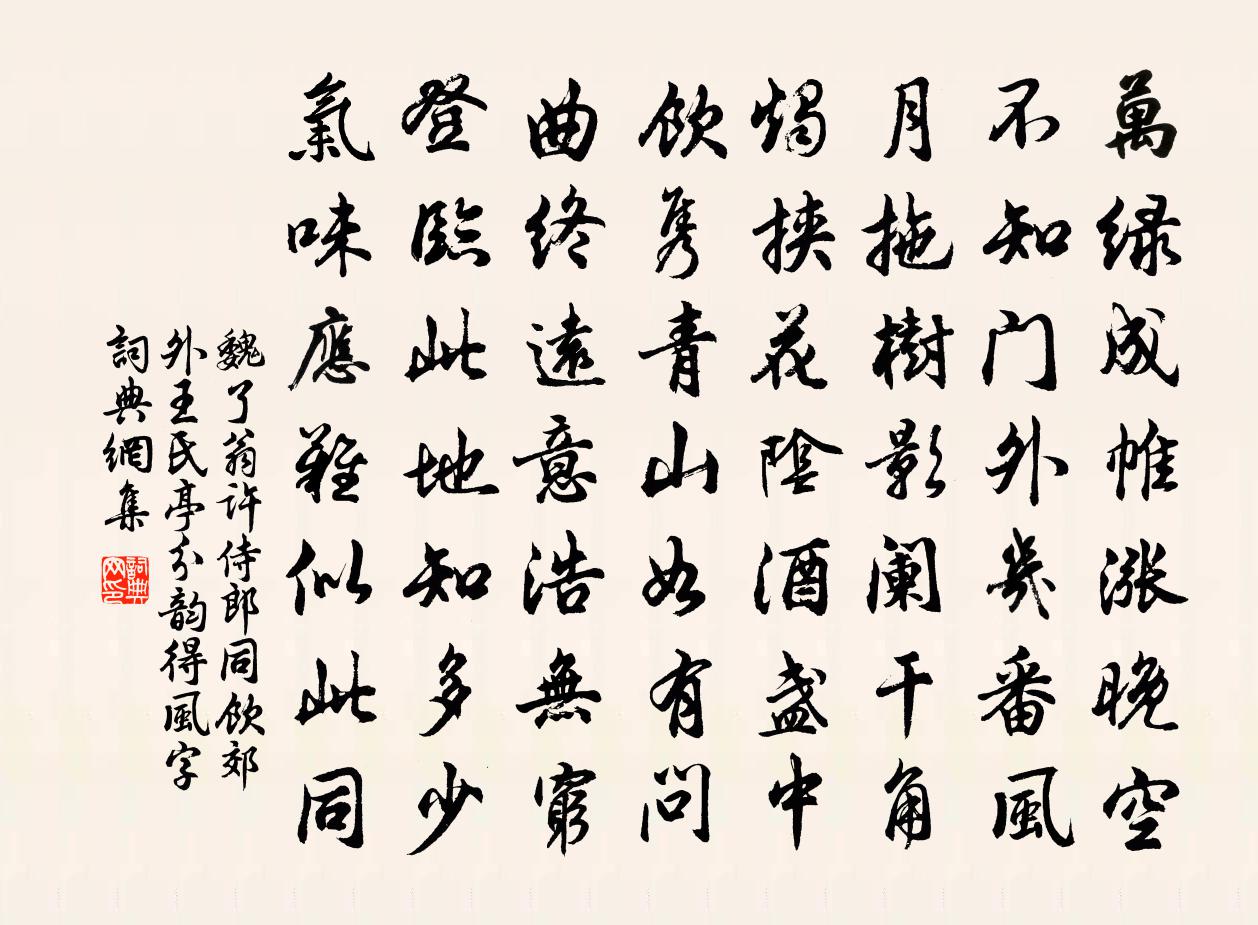 萬绿成帷漲晚空
不知门外幾番風
月拖樹影阑干角
燭挟花陰酒盏中
飲隽青山如有问
曲终遠意浩無窮
登臨此地知多少
氣味應難似此同
魏了翁许侍郎同飲郊
外王氏亭分韵得風字
詞典網集
詞典
网印